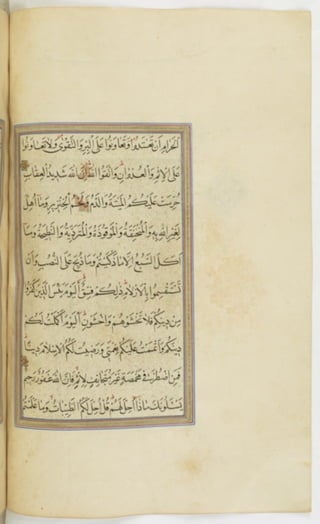 الْحَرَامِ أَنْ تَعْتَدُوا وَتَعَاوَنُوا عَلَى الْبِرِّ وَالتَّقْوَىٰ وَلَا تَعَاوَنُوا
عَلَى الْإِثْمِ وَالْعُدْوَانِ وَاتَّقُوا اللَّهَ إِنَّ اللَّهَ شَدِيدُ الْعِقَابِ
حُرِّمَتْ عَلَيْكُمُ الْمَيْتَةُ وَالدَّمُ وَلَحْمُ الْخِنْزِيرِ وَمَا أُهِلَّ
لِغَيْرِ اللَّهِ بِهِ وَالْمُنْخَنِقَةُ وَالْمَوْقُوذَةُ وَالْمُتَرَدِّيَةُ وَالنَّطِيحَةُ وَمَا
أَكَلَ السَّبُعُ إِلَّا مَا ذَكَّيْتُمْ وَمَا ذُبِحَ عَلَى النُّصُبِ وَأَنْ
تَسْتَقْسِمُوا بِالْأَزْلَامِ ذَٰلِكُمْ فِسْقٌ الْيَوْمَ يَئِسَ الَّذِينَ كَفَرُوا
مِنْ دِينِكُمْ فَلَا تَخْشَوْهُمْ وَاخْشَوْنِ الْيَوْمَ أَكْمَلْتُ لَكُمْ
دِينَكُمْ وَأَتْمَمْتُ عَلَيْكُمْ نِعْمَتِي وَرَضِيتُ لَكُمُ الْإِسْلَامَ دِينًا
فَمَنِ اضْطُرَّ فِي مَخْمَصَةٍ غَيْرَ مُتَجَانِفٍ لِإِثْمٍ فَإِنَّ اللَّهَ غَفُورٌ رَحِيمٌ
يَسْأَلُونَكَ مَاذَا أُحِلَّ لَهُمْ قُلْ أُحِلَّ لَكُمُ الطَّيِّبَاتُ وَمَا عَلَّمْتُمْ